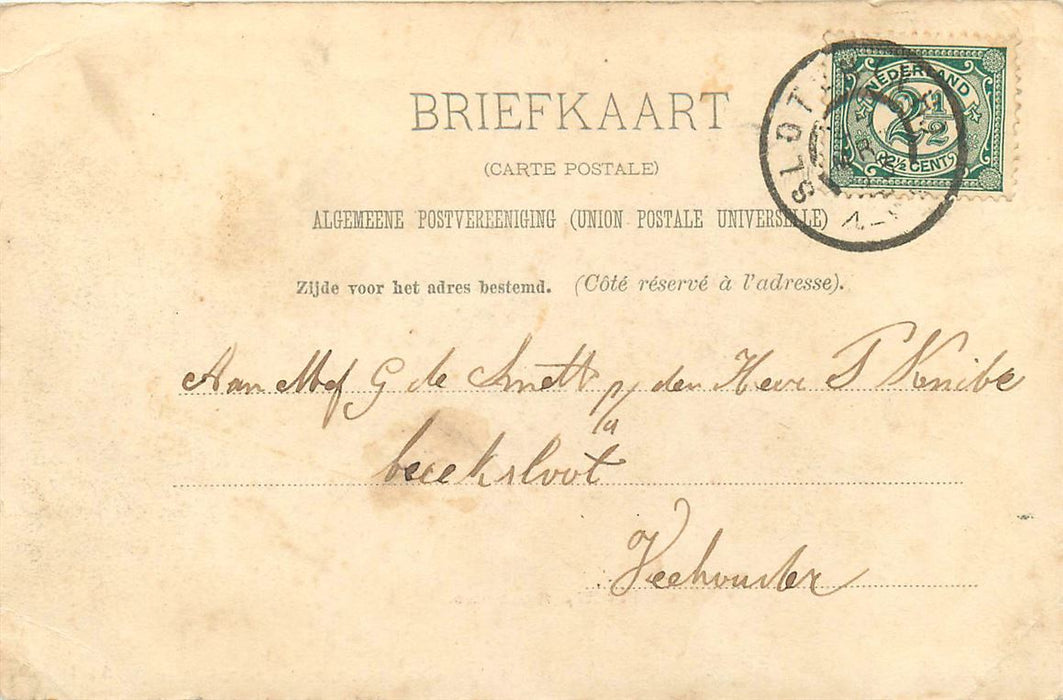 BRIEFKAART
(CARTE POSTALE)
ALGEMEENE POSTVEREENIGING (UNION POSTALE UNIVERSELLE)
Zijde voor het adres bestemd. (Côté réservé à l'adresse).
NEDERLAND
2½
2½ CENT
SLOT
Aan Mej G de Smett p/ den Heer T Knibe
beeksloot
Veehouder